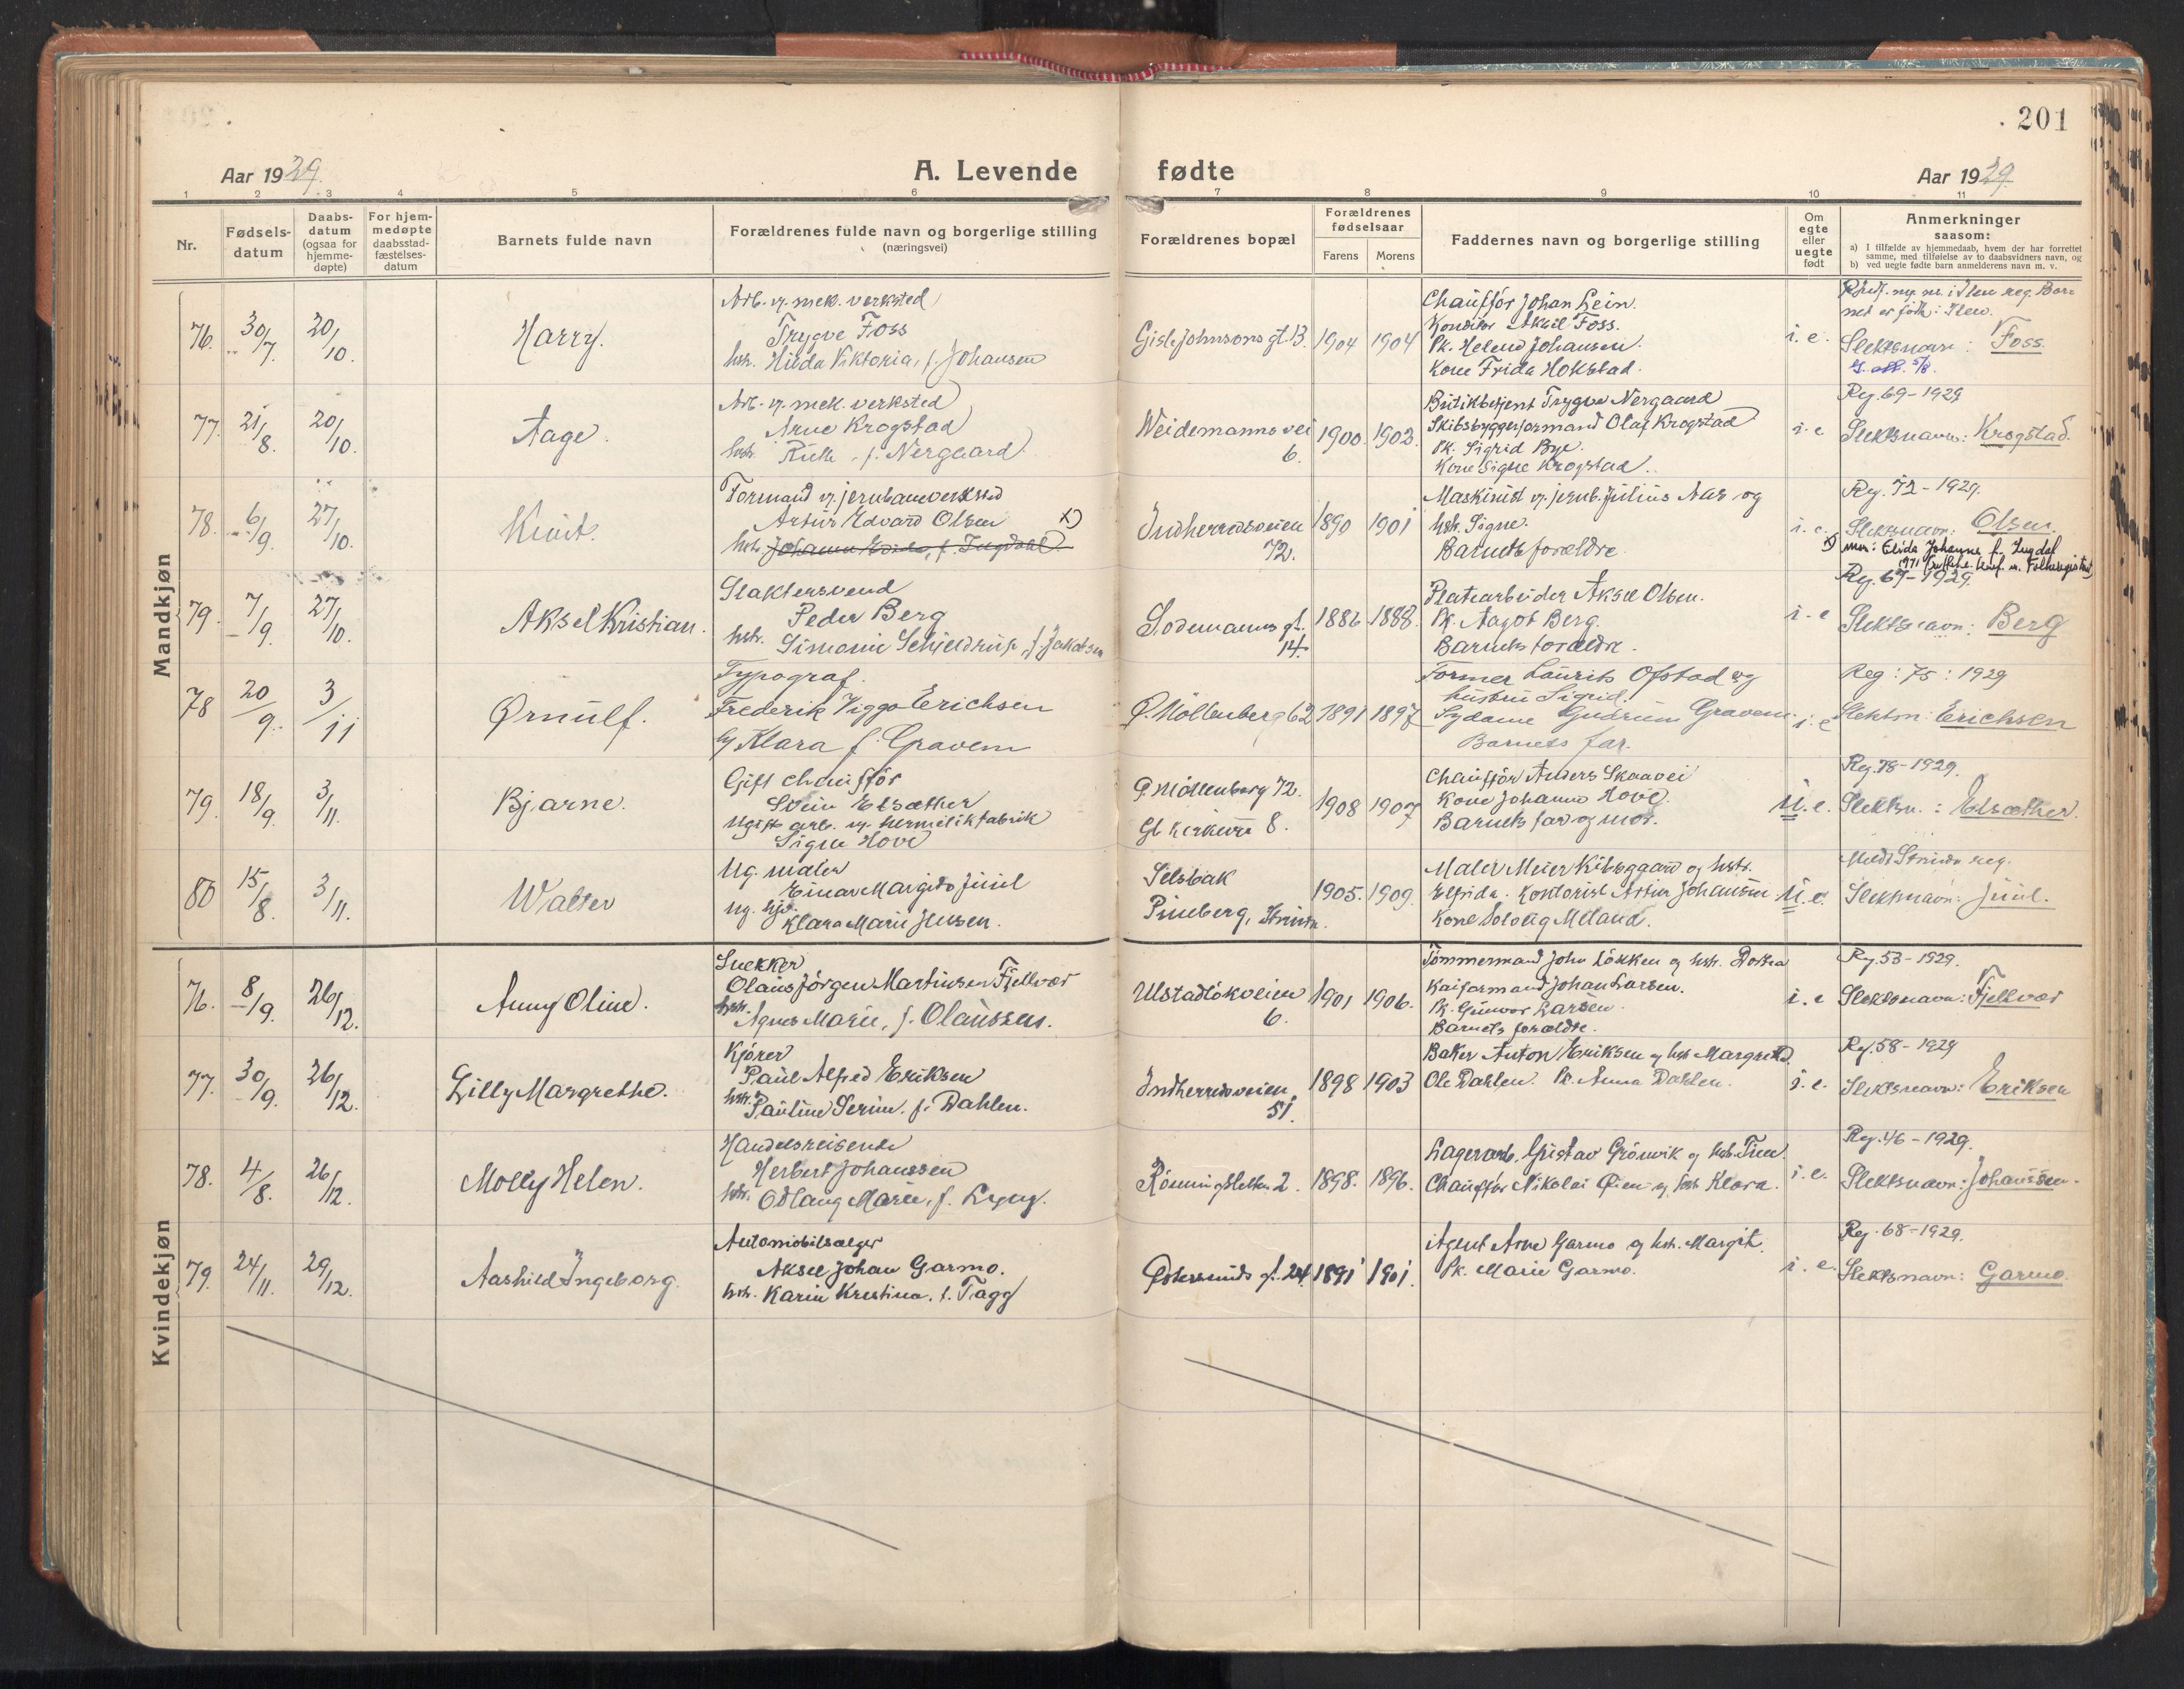 201
Aar 1929.
A. Levende fødte
Aar 1929.
1 2 3 4 5 6 7 8 9 10 11
Nr.
Fødsels-
datum
Daabs-
datum
(ogsaa for
hjemme-
døpte)
For hjem-
medøpte
daabsstad-
fæstelses-
datum
Barnets fulde navn
Forældrenes fulde navn og borgerlige stilling
(næringsvei)
Forældrenes bopæl
Forældrenes
fødselsaar
Farens Morens
Faddernes navn og borgerlige stilling
Om
egte
eller
uegte
født
Anmerkninger
saasom:
a) I tilfælde av hjemmedaab, hvem der har forrettet
samme, med tilføielse av to daabsvidners navn, og
b) ved uegte fødte barn anmelderens navn m. v.
Mandkjøn
76. 30/7. 20/10.
Harry.
Arb. v. mek. verksted
Trygve Foss
hstr. Hilda Viktoria, f. Johansen
Gisle Johnsons gt. 13.
1904 1904
Chauffør Johan Lein.
Konditor Aksel Foss.
Pk. Helene Johansen.
Kone Frida Hokstad.
i. e.
net er født i Ilen.
Slektsnavn: Foss.
77. 21/8. 20/10.
Aage.
Arb. v. mek. verksted
Arne Krogstad
hstr. Ruth, f. Nergaard.
Weidemannsvei
6.
1900. 1902.
Butikbetjent Trygve Nergaard
Skibsbyggerformand Olaf Krogstad
Pk. Sigrid Bye.
Kone Signe Krogstad.
i. e
Reg. 69-1929
Slektsnavn: Krogstad.
78. 6/9. 27/10.
Knut.
Formand v. jernbaneverksted
Artur Edvard Olsen x)
hstr. Johanne Elida, f. Ingdahl.
Indherredsveien
72.
1890 1901
Maskinist v. jernb. Julius Aas og
hstr. Signe.
Barnets forældre.
i. e.
Reg. 72-1929.
Slektsnavn: Olsen.
x) mor: Elida Johanne f. Ingdal
79. 7/9. 27/10.
Aksel Kristian.
Slaktersvend
Peder Berg
hstr. Simonie Schjeldrup, f. Jakobsen
Sodemanns gt.
14.
1886 1888.
Platearbeider Aksel Olsen.
Pk. Aagot Berg.
Barnets forældre.
i. e
Reg. 67-1929.
Slektsnavn: Berg
78 20/9. 3/11
Ørnulf.
Typograf.
Frederik Viggo Erichsen
og Klara f. Gravem
Ø. Møllenberg 62
1891 1897
Former Laurits Ofstad og
hustru Sigrid.
Sydame Gudrun Gravem.
Barnets far.
i. e
Reg: 75: 1929
Slektsn: Erichsen
79. 18/9. 3/11.
Bjarne.
Gift chauffør
Svein Elsæther
Ugift arb. v. hermetikfabrik
Signe Hove
Ø. Møllenberg 72.
8.
1908 1907
Chauffør Anders Skaavei
Kone Johanne Hove.
Barnets far og mor.
u. e.
Reg. 78-1929.
Slektsn.: Elsæther.
80 15/8. 3/11.
Walter
Ug. maler
Einar Margido Juul
ug. hjv.
Klara Marie Jensen.
Selsbak
Pineberg, Strinda.
1905. 1909.
Maler Meier Kibsgaard og hstr.
Elfrida. Kontorist Artur Johansen
Kone Solveig Meland.
u. e.
Meldt Strinda reg.
Slektsnavn: Juul.
Kvindekjøn
76. 8/9. 26/12.
Anny Oline.
Snekker
Olaus Jørgen Martinsen Fjellvær
hstr. Agnes Marie, f. Olaussen.
Ulstadløkveien
6.
1901 1906.
Tømmermand John Løkken og hstr. Dortea
Kaiformand Johan Larsen.
Pk. Gunvor Larsen.
Barnets forældre.
i. e
Reg. 53-1929.
Slektsnavn: Fjellvær
77. 30/9. 26/12.
Lilly Margrethe.
Kjører
Paul Alfred Eriksen
hstr. Pauline Serine, f. Dahlen.
Indherredsveien.
51.
1898 1903
Baker Anton Eriksen og hstr. Margrethe.
Ole Dahlen. Pk. Anna Dahlen.
i. e.
Reg. 58-1929
Slektsnavn: Eriksen
78. 4/8. 26/12.
Molly Helen.
Handelsreisende
Herbert Johanssen
hstr. Odlaug Marie, f. Lyng.
Rønningsletten 2.
1898. 1896.
Lagerarb. Gustav Grønvik og hstr.
Chauffør Nikolai Øien og hstr. Klara.
i. e.
Reg. 46-1929.
Slektsnavn: Johanssen.
79. 24/11. 29/12.
Aashild Ingeborg.
Automobilsælger
Aksel Johan Garmo.
hstr. Karin Kristina, f. Tagg
Østersunds gt. 24.
1891 1901.
Agent Arne Garmo og hstr. Margit.
Pk. Marie Garmo.
i. e.
Reg. 68-1929.
Slektsnavn: Garmo.